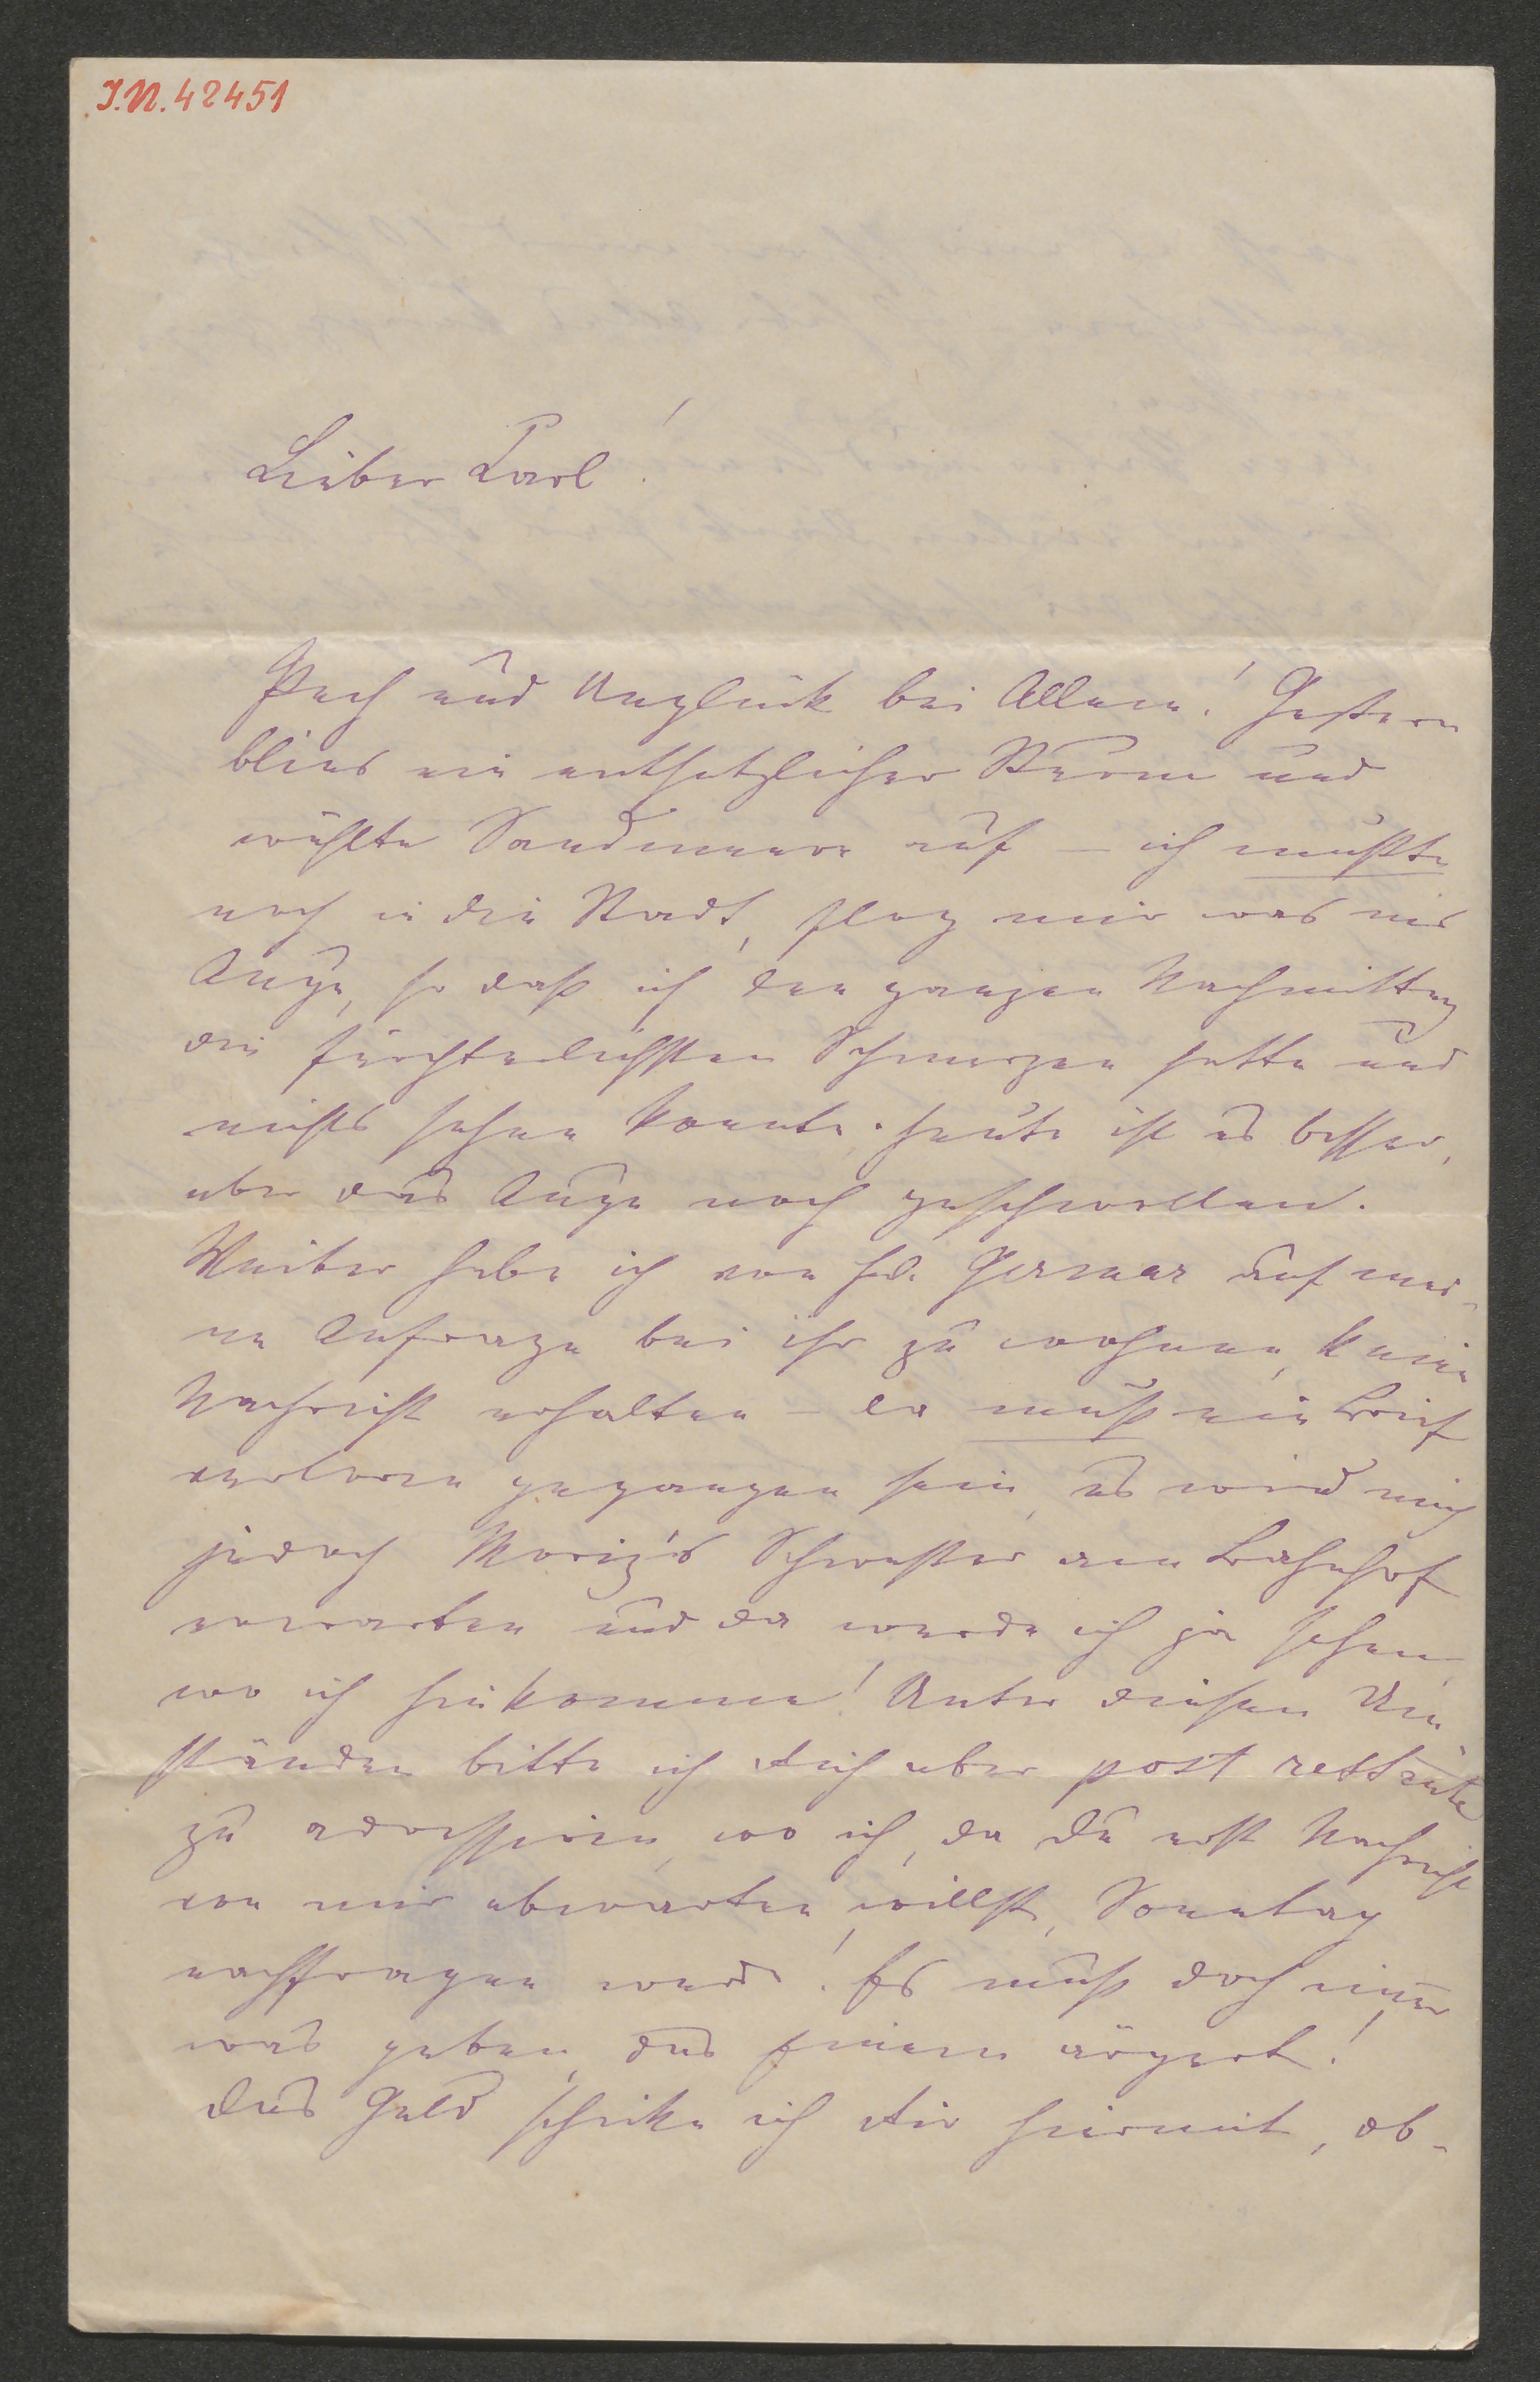 I.N. 42451
Lieber Carl!
Pech und Unglück bei Allem! Gestern
blies ein entsetzlicher Sturm und
wühlte Sandmeere auf – ich mußte
noch in die Stadt, flog mir was ins
Auge, so daß ich den ganzen Nachmittag
die fürchterlichsten Schmerzen hatte und
nichts sehen konnte. heute ist es besser,
aber das Auge noch geschwollen.
Weiter habe ich von Frl. Germar auf mei-
ne Anfrage bei ihr zu wohnen, keine
Nachricht erhalten – da muß ein Brief
verloren gegangen sein, es wird mich
jedoch Moriz's Schwester am Bahnhof
erwarten und da werde ich ja sehen
wo ich hinkomme! Unter diesen Um
ständen bitte ich dich aber post restante
zu adressiren, wo ich, da du erst Nachricht
von mir abwarten willst, Sonntag
nachfragen werde! Es muß doch immer
was geben, das Einem ärgert!
Das Geld schicke ich dir hiermit, ob-